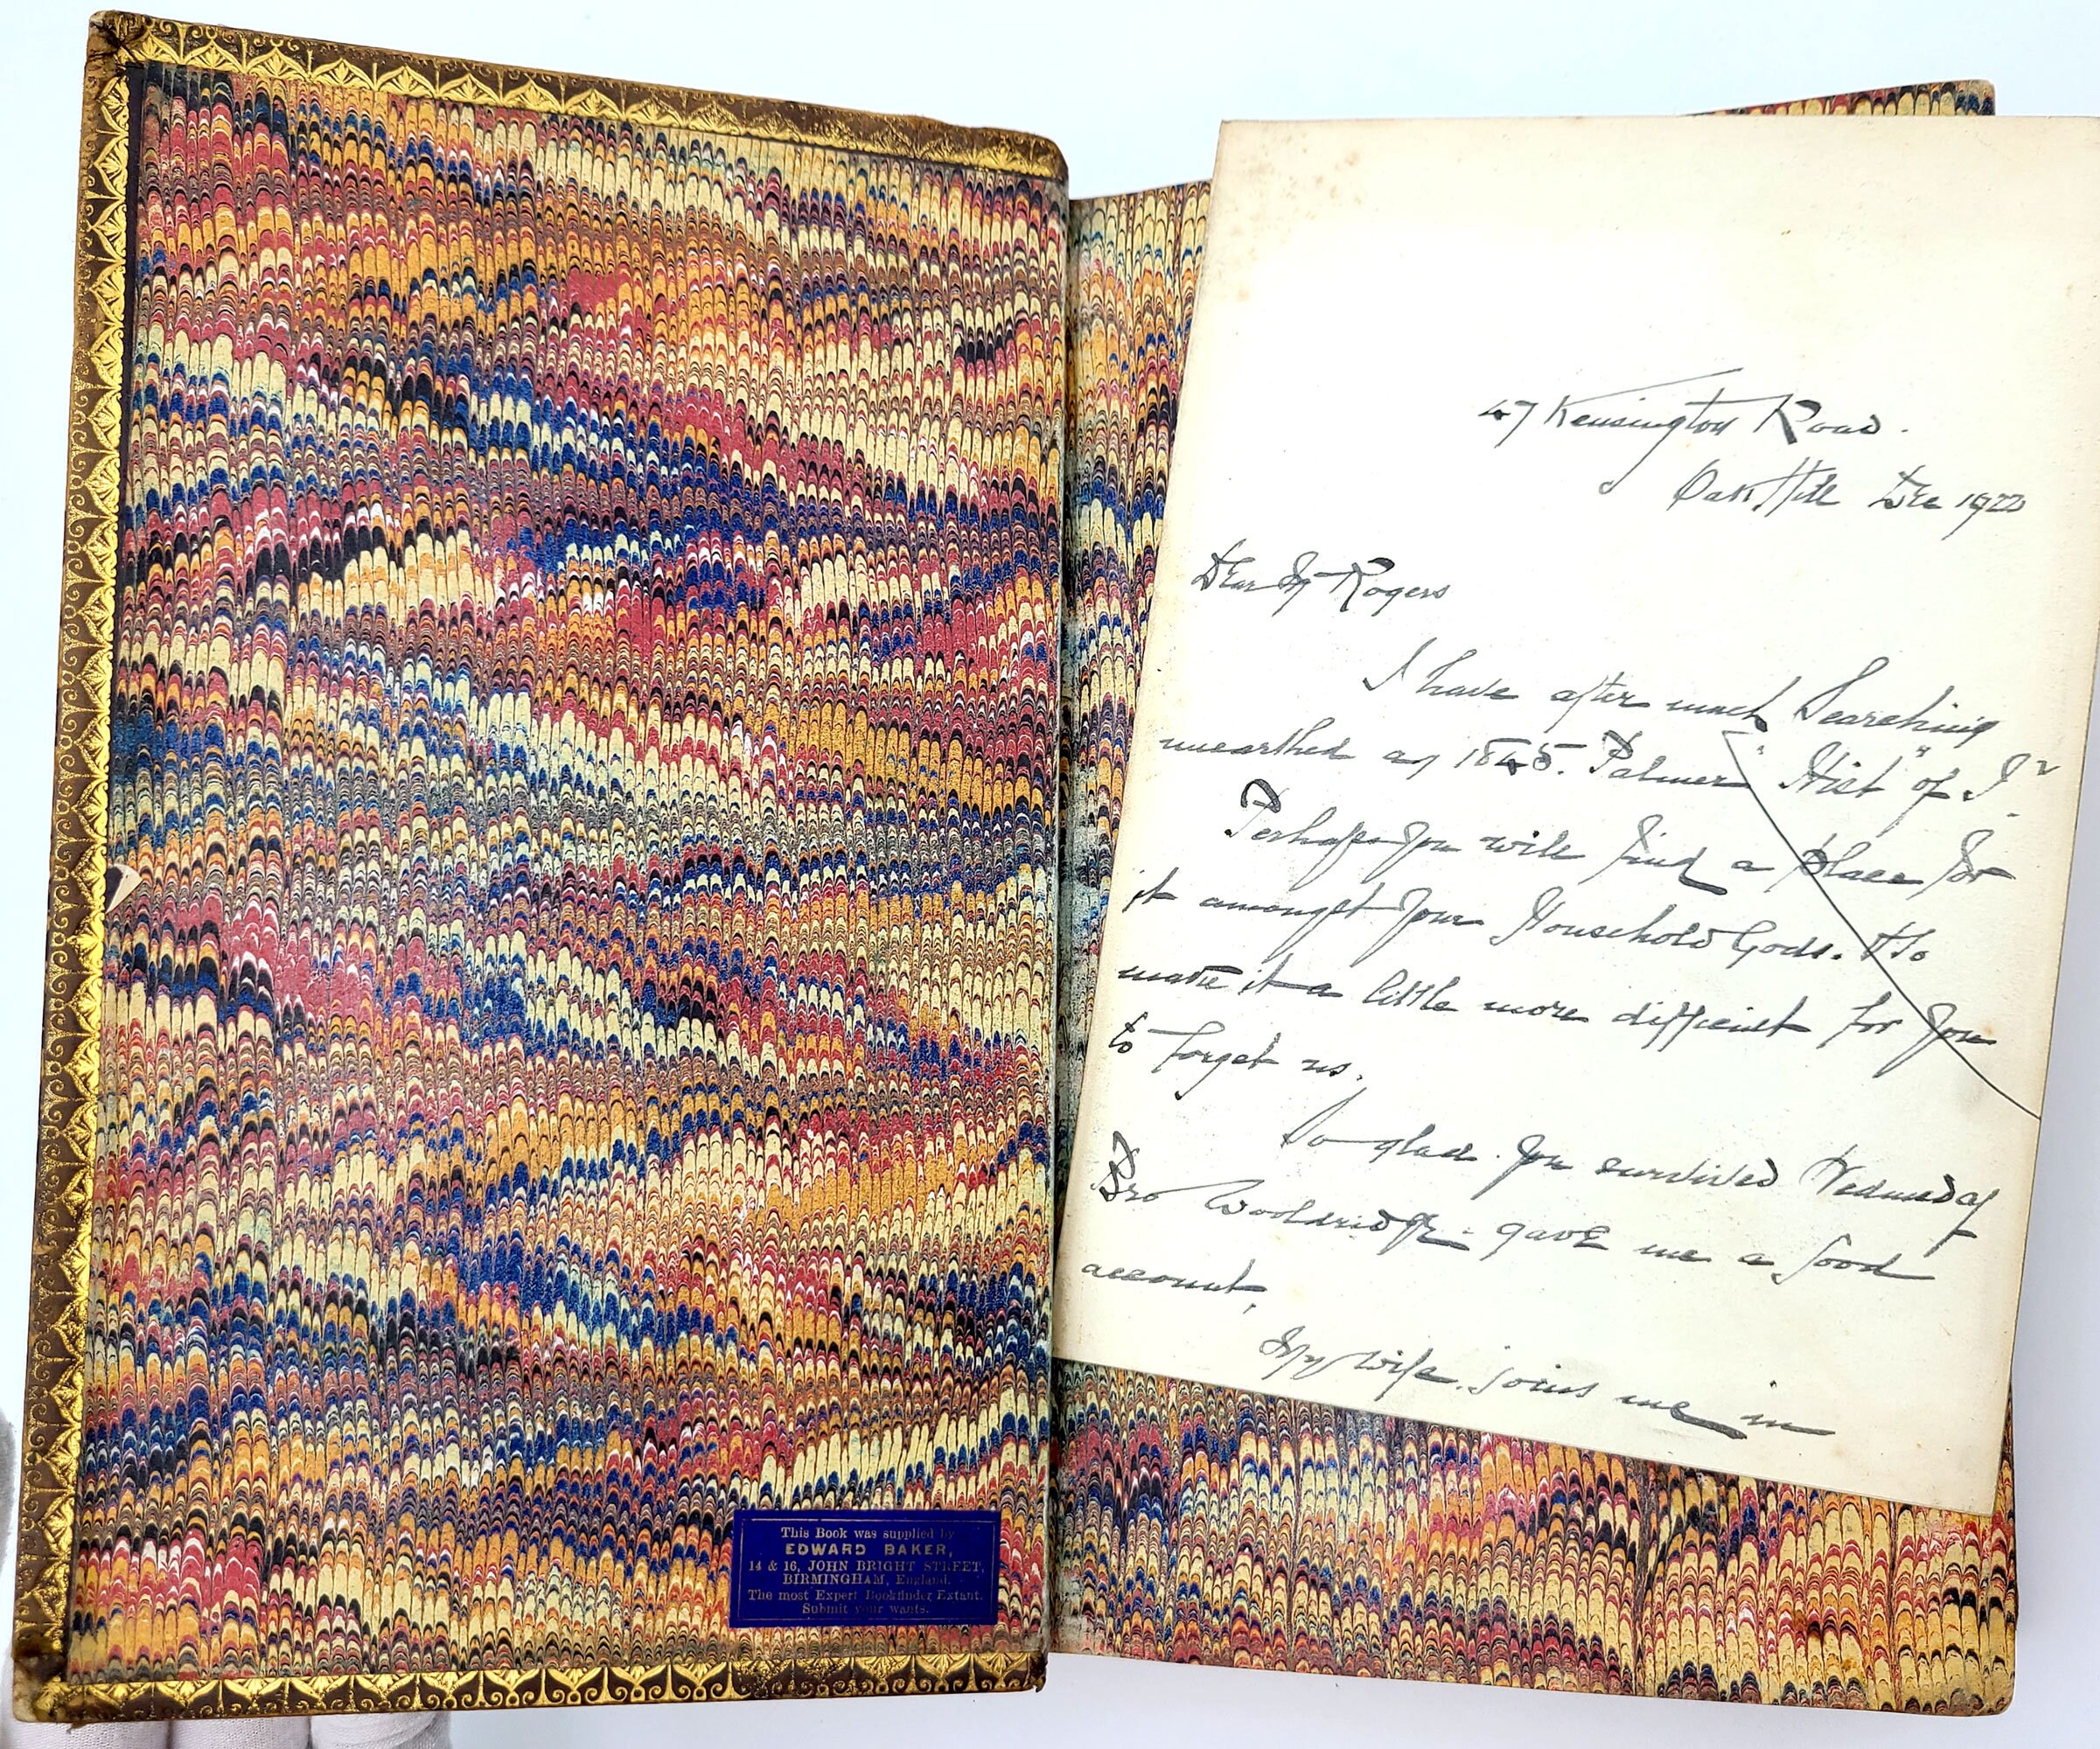 This Book was supplied by
EDWARD BAKER,
14 & 16, JOHN BRIGHT STREET,
BIRMINGHAM, England.
The most Expert Bookfinder Extant.
Submit your wants.
47 Kensington Road.
Oak Hill Dec 1922
Dear Mr Rogers
I have after much Searching
unearthed an 1845. Palmer "Hist" of
Perhaps you will find a place for
it amongst your Household Gods. &
make it a little more difficult for you
to forget us.
So glad. you survived Wednesday
Bro Wooldridge. gave me a good
account,
My wife. joins me in